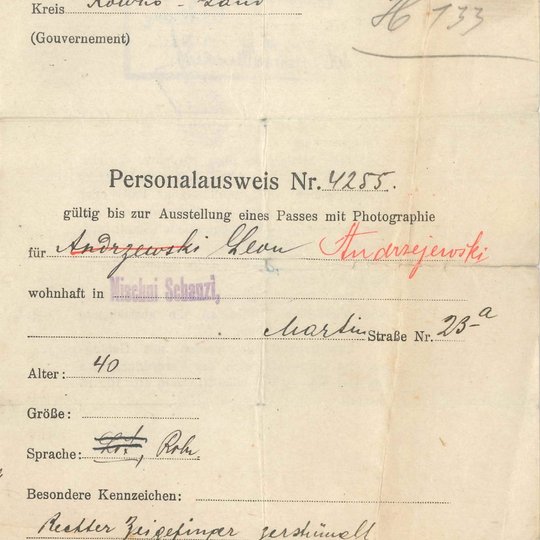 Kreis Kowno-Land
H 133
(Gouvernement)
Personalausweis Nr. 4255.
gültig bis zur Ausstellung eines Passes mit Photographie
für Andrzewski Leon Andrzejewski
wohnhaft in Nischni Schanzi,
Martin Straße Nr. 23-a
Alter: 40
Größe:
Sprache:
Besondere Kennzeichen:
Rechter Zeigefinger